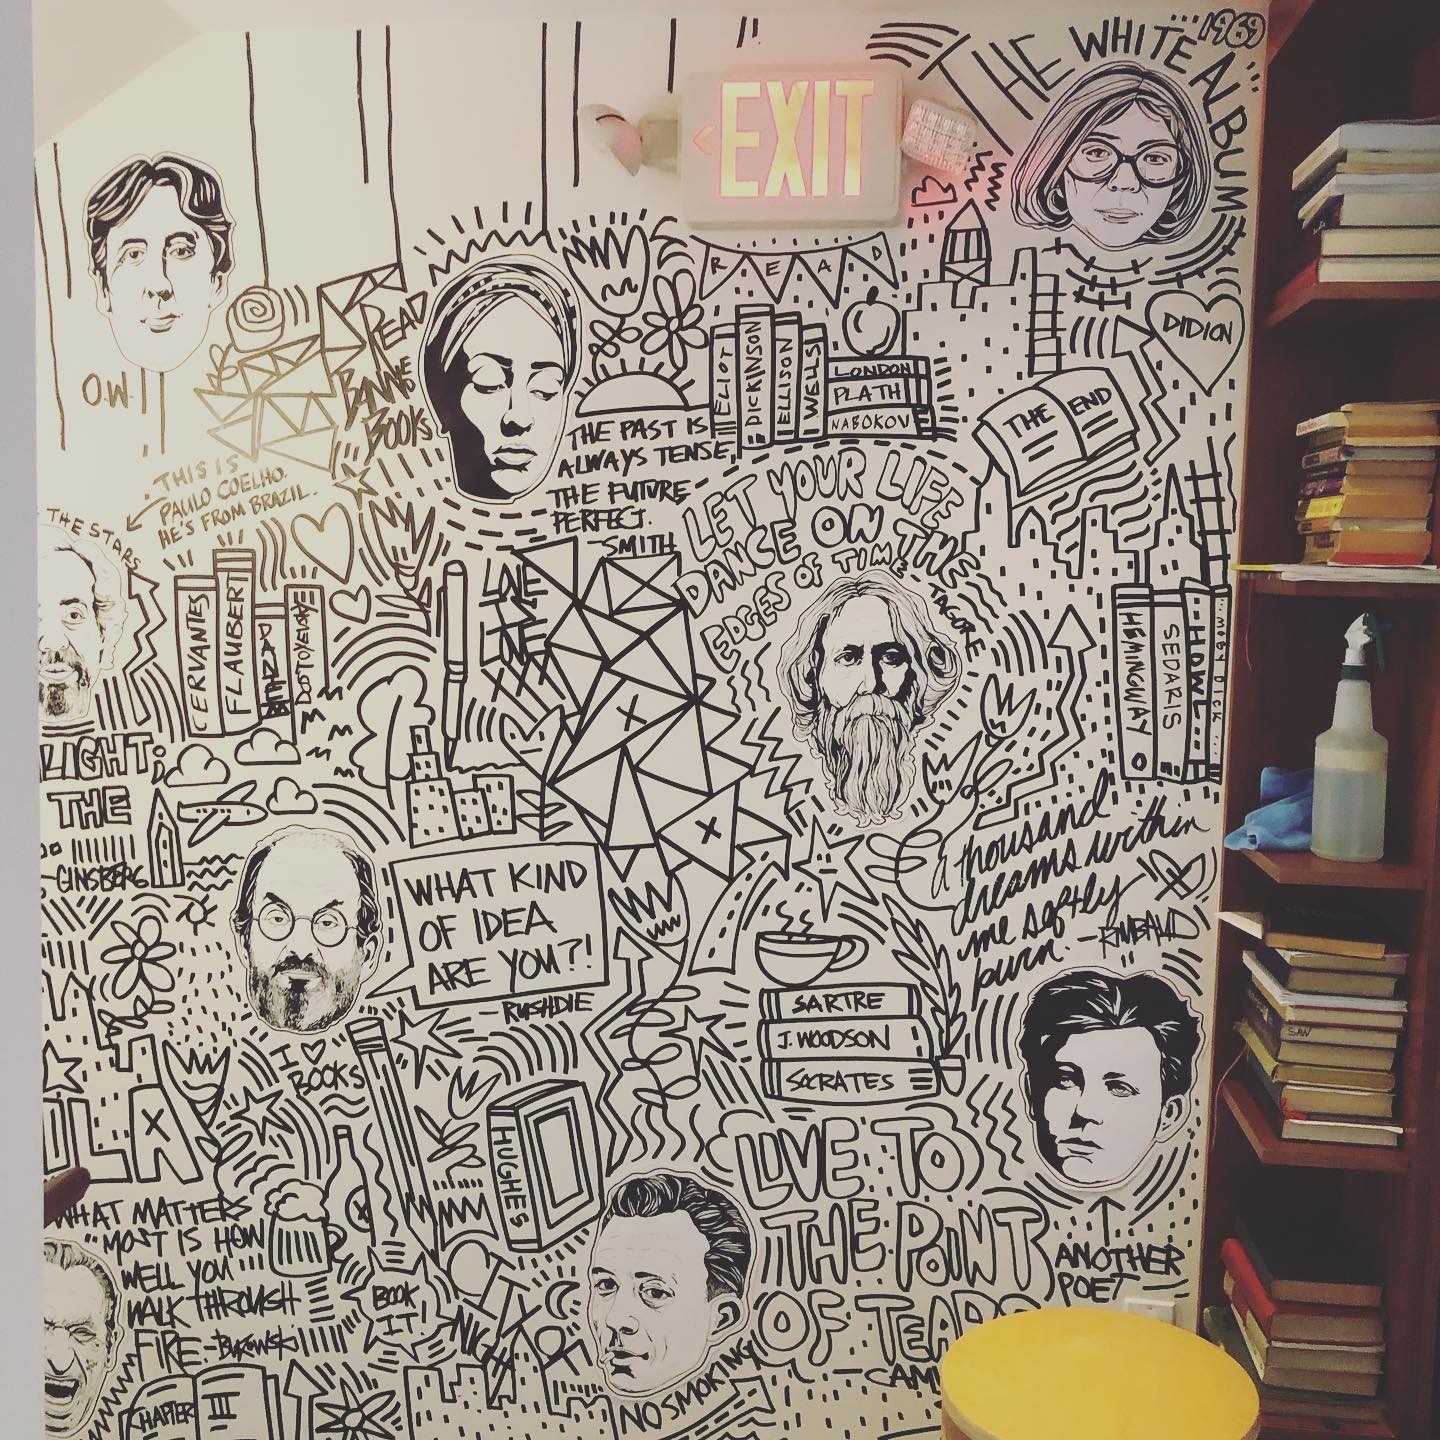 1969
THE WHITE ALBUM
EXIT
READ
DIDION
O.W.
READ
BANNED
BOOKS
ELIOT
DICKINSON
ELLISON
WELLS
LONDON
PLATH
NABOKOV
THE END
THE PAST IS
ALWAYS TENSE,
THE FUTURE
PERFECT.
-SMITH
THIS IS
PAULO COELHO.
HE'S FROM BRAZIL.
THE STARS
LET YOUR LIFE
DANCE ON THE
EDGES OF TIME - TAGORE
CERVANTES
FLAUBERT
DANTE
DOSTOYEVSKY
LOVE
IS
LOVE
HEMINGWAY
SEDARIS
HOWL
...MOBY DICK...
LIGHT;
THE
-GINSBERG
WHAT KIND
OF IDEA
ARE YOU?!
-RUSHDIE
a thousand
dreams within
me softly
burn. -RIMBAUD
SARTRE
J. WOODSON
SOCRATES
I ♡
BOOKS
HUGHES
LIVE TO
THE POINT
OF TEARS
-CAM
ANOTHER
POET
WHAT MATTERS
MOST IS HOW
WELL YOU
WALK THROUGH
FIRE.-Bukowski
BOOK
IT!
NO SMOKING
CHAPTER III
SAW